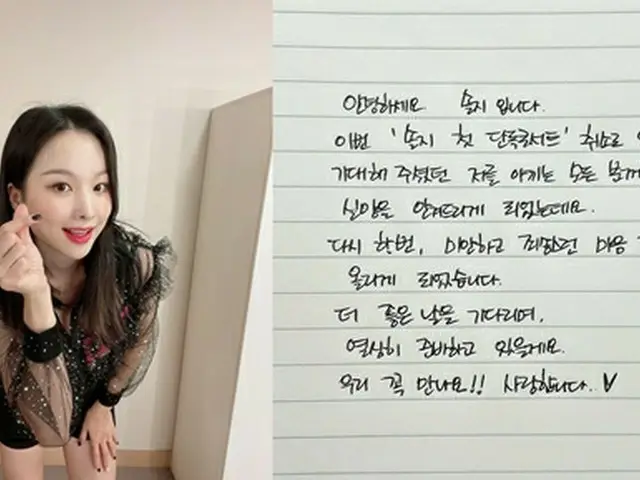 안녕하세요. 솔지 입니다.
이번 '솔지 첫 단독콘서트' 취소로
기대해 주셨던 저를 아끼는 모든 분께
실망을 안겨드리게 되었는데요.
다시 한번, 미안하고 죄송한 마음
올리게 되었습니다.
더 좋은 날을 기다리며,
열심히 준비하고 있을게요.
우리 꼭 만나요!! 사랑합니다.♥